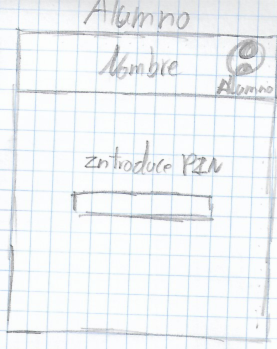 Alumno
Nombre
Alumno
Introduce PIN